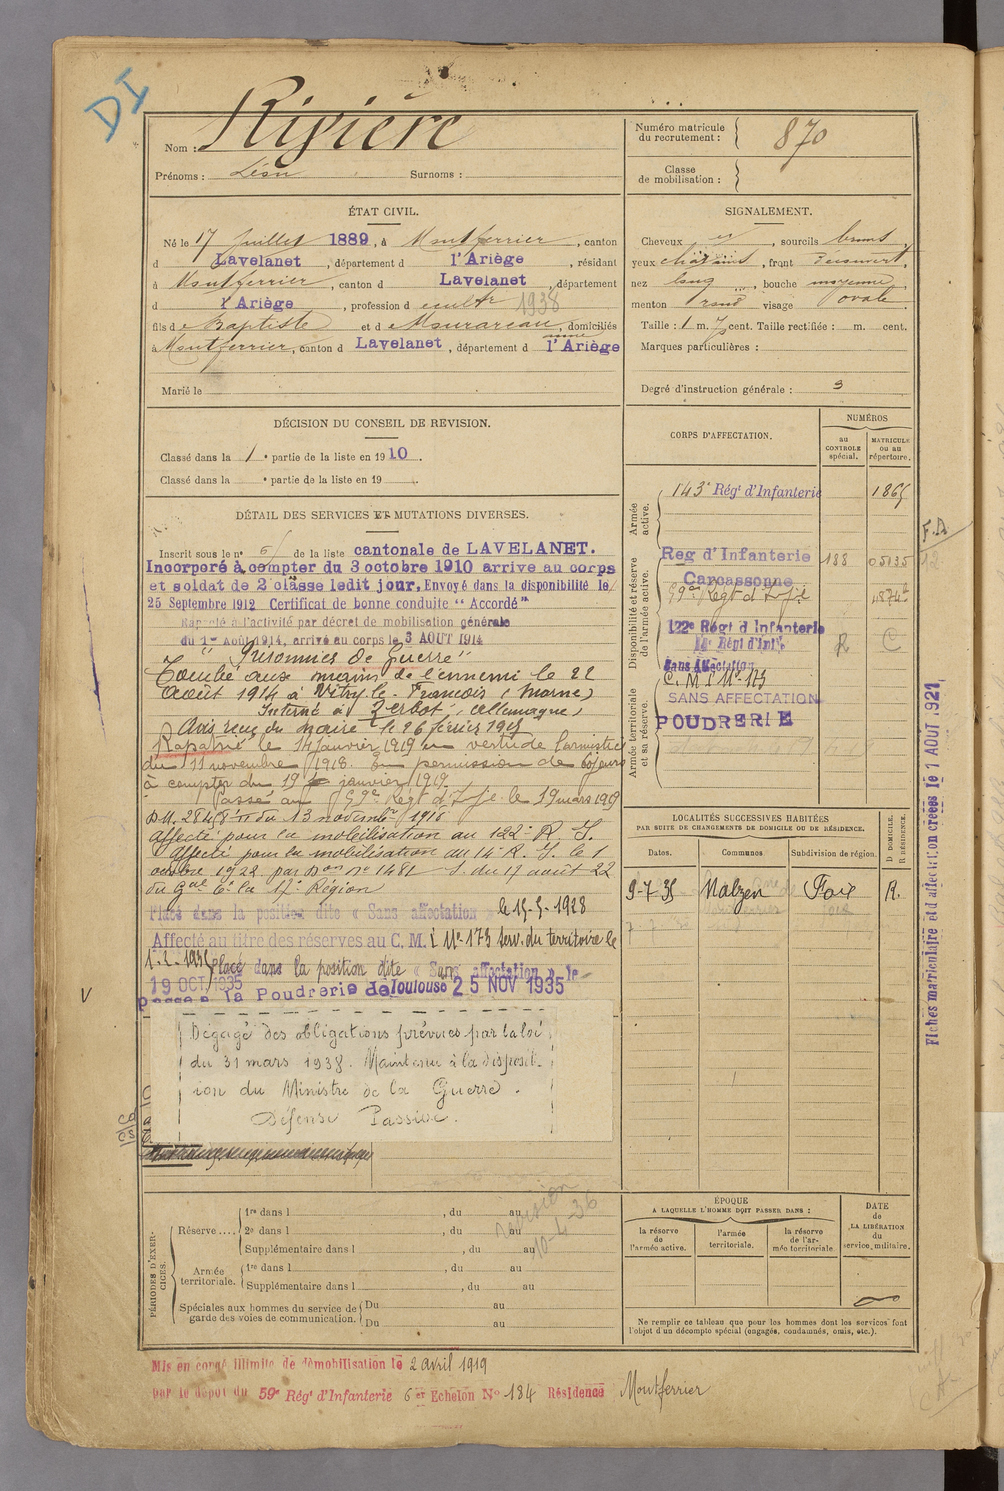 DI
Nom : Rivière
Prénoms : Léon Surnoms :
Numéro matricule
du recrutement : 870
Classe
de mobilisation :
ÉTAT CIVIL.
Né le 17 juillet 1889, à Montferrier, canton
d Lavelanet, département d l'Ariège, résidant
à Montferrier, canton d Lavelanet, département
d l'Ariège, profession d cultr 1938
fils de Baptiste et de, domiciliés
à Montferrier, canton d Lavelanet, département d l'Ariège
Marié le
SIGNALEMENT.
Cheveux, sourcils bruns,
yeux châtains, front découvert,
nez long, bouche moyenne,
menton rond visage ovale
Taille : 1 m. cent. Taille rectifiée : m. cent.
Marques particulières :
Degré d'instruction générale : 3
DÉCISION DU CONSEIL DE REVISION.
Classé dans la 1 e partie de la liste en 1910.
Classé dans la e partie de la liste en 19 .
CORPS D'AFFECTATION.
NUMÉROS
au
CONTROLE
spécial.
MATRICULE
ou au
répertoire.
Armée
active.
143e Régt d'Infanterie 1865
Disponibilité et réserve
de l'armée active.
Reg d'Infanterie 188 05135
Carcassonne
59e Regt d'Infie
122e Régt d'Infanterie R C
14e Régt d'Infie
Sans Affectation
Armée territoriale
et sa réserve.
C. M. I No 173
SANS AFFECTATION
POUDRERIE
DÉTAIL DES SERVICES ET MUTATIONS DIVERSES.
Inscrit sous le no 6 de la liste cantonale de LAVELANET.
Incorporé à compter du 3 octobre 1910 arrive au corps
et soldat de 2e classe ledit jour. Envoyé dans la disponibilité le
25 Septembre 1912 Certificat de bonne conduite "Accordé"
Rappelé à l'activité par décret de mobilisation générale
du 1er Août 1914, arrivé au corps le 3 AOUT 1914
"Prisonnier de Guerre"
Tombé aux mains de l'ennemi le 22
Août 1914 à Vitry-le-François (Marne)
Interné à Zerbst, (Allemagne)
Avis reçu du maire le 26 février 1915
Rapatrié le 14 janvier 1919 en vertu de l'armistice
du 11 novembre 1918. En permission de 60 jours
à compter du 19 janvier 1919
Passé au 59e Regt d'Infie le 19 mars 1919
D.M. 28448 du 13 novembre 1918
Affecté pour la mobilisation au 122e R. I.
Affecté pour la mobilisation au 14e R. I. le 1
octobre 1922 par Don No 1481 du 17 août 22
du Gal Ct la 17e Région
Placé dans la position dite « Sans affectation » le 15-5-1928
Affecté au titre des réserves au C. M. I No 173 serv. du territoire le
Placé dans la position dite « Sans affectation » le
19 OCT 1935
passé à la Poudrerie de Toulouse 25 NOV 1935
Dégagé des obligations prévues par la loi
du 31 mars 1938. Maintenu à la disposit-
ion du Ministre de la Guerre.
Défense Passive.
LOCALITÉS SUCCESSIVES HABITÉES
PAR SUITE DE CHANGEMENTS DE DOMICILE OU DE RÉSIDENCE.
Dates. Communes. Subdivision de région. D DOMICILE. R RÉSIDENCE.
9-7-35 Malzen Foix R.
Fiches matriculaire et d'affectation créées le 1 AOUT 1921
PÉRIODES D'EXER-
CICES.
Réserve.... 1re dans l , du au
2e dans l , du au
Supplémentaire dans l , du au
Armée
territoriale. 1re dans l , du au
Supplémentaire dans l , du au
Spéciales aux hommes du service de
garde des voies de communication. Du au
Du au
revision
10-4-36
ÉPOQUE
A LAQUELLE L'HOMME DOIT PASSER DANS :
la réserve
de
l'armée active.
l'armée
territoriale.
la réserve
de l'ar-
mée territoriale.
DATE
de
LA LIBÉRATION
du
service militaire.
Ne remplir ce tableau que pour les hommes dont les services font
l'objet d'un décompte spécial (engagés, condamnés, omis, etc.).
Mis en congé illimité de démobilisation le 2 avril 1919
par le dépôt du 59e Régt d'Infanterie 6e Echelon No 184 Résidence Montferrier